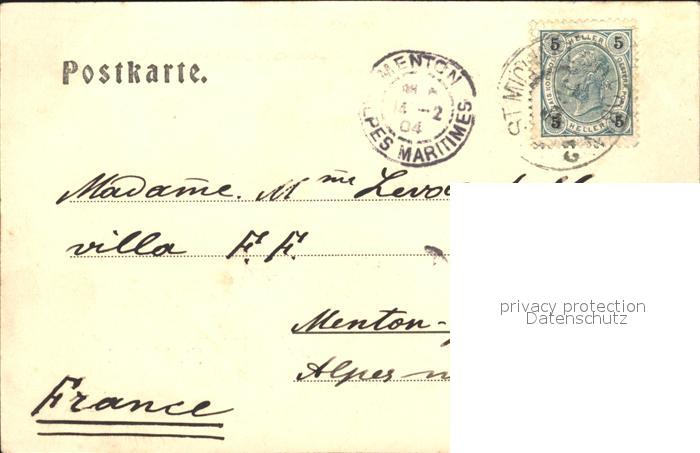 Postkarte.
MENTON
14 -2
04
ALPES MARITIMES
ST MICH
5 HELLER 5
5 HELLER 5
Madame. Mme
villa F. F.
Menton-
Alpes m
France
privacy protection
Datenschutz